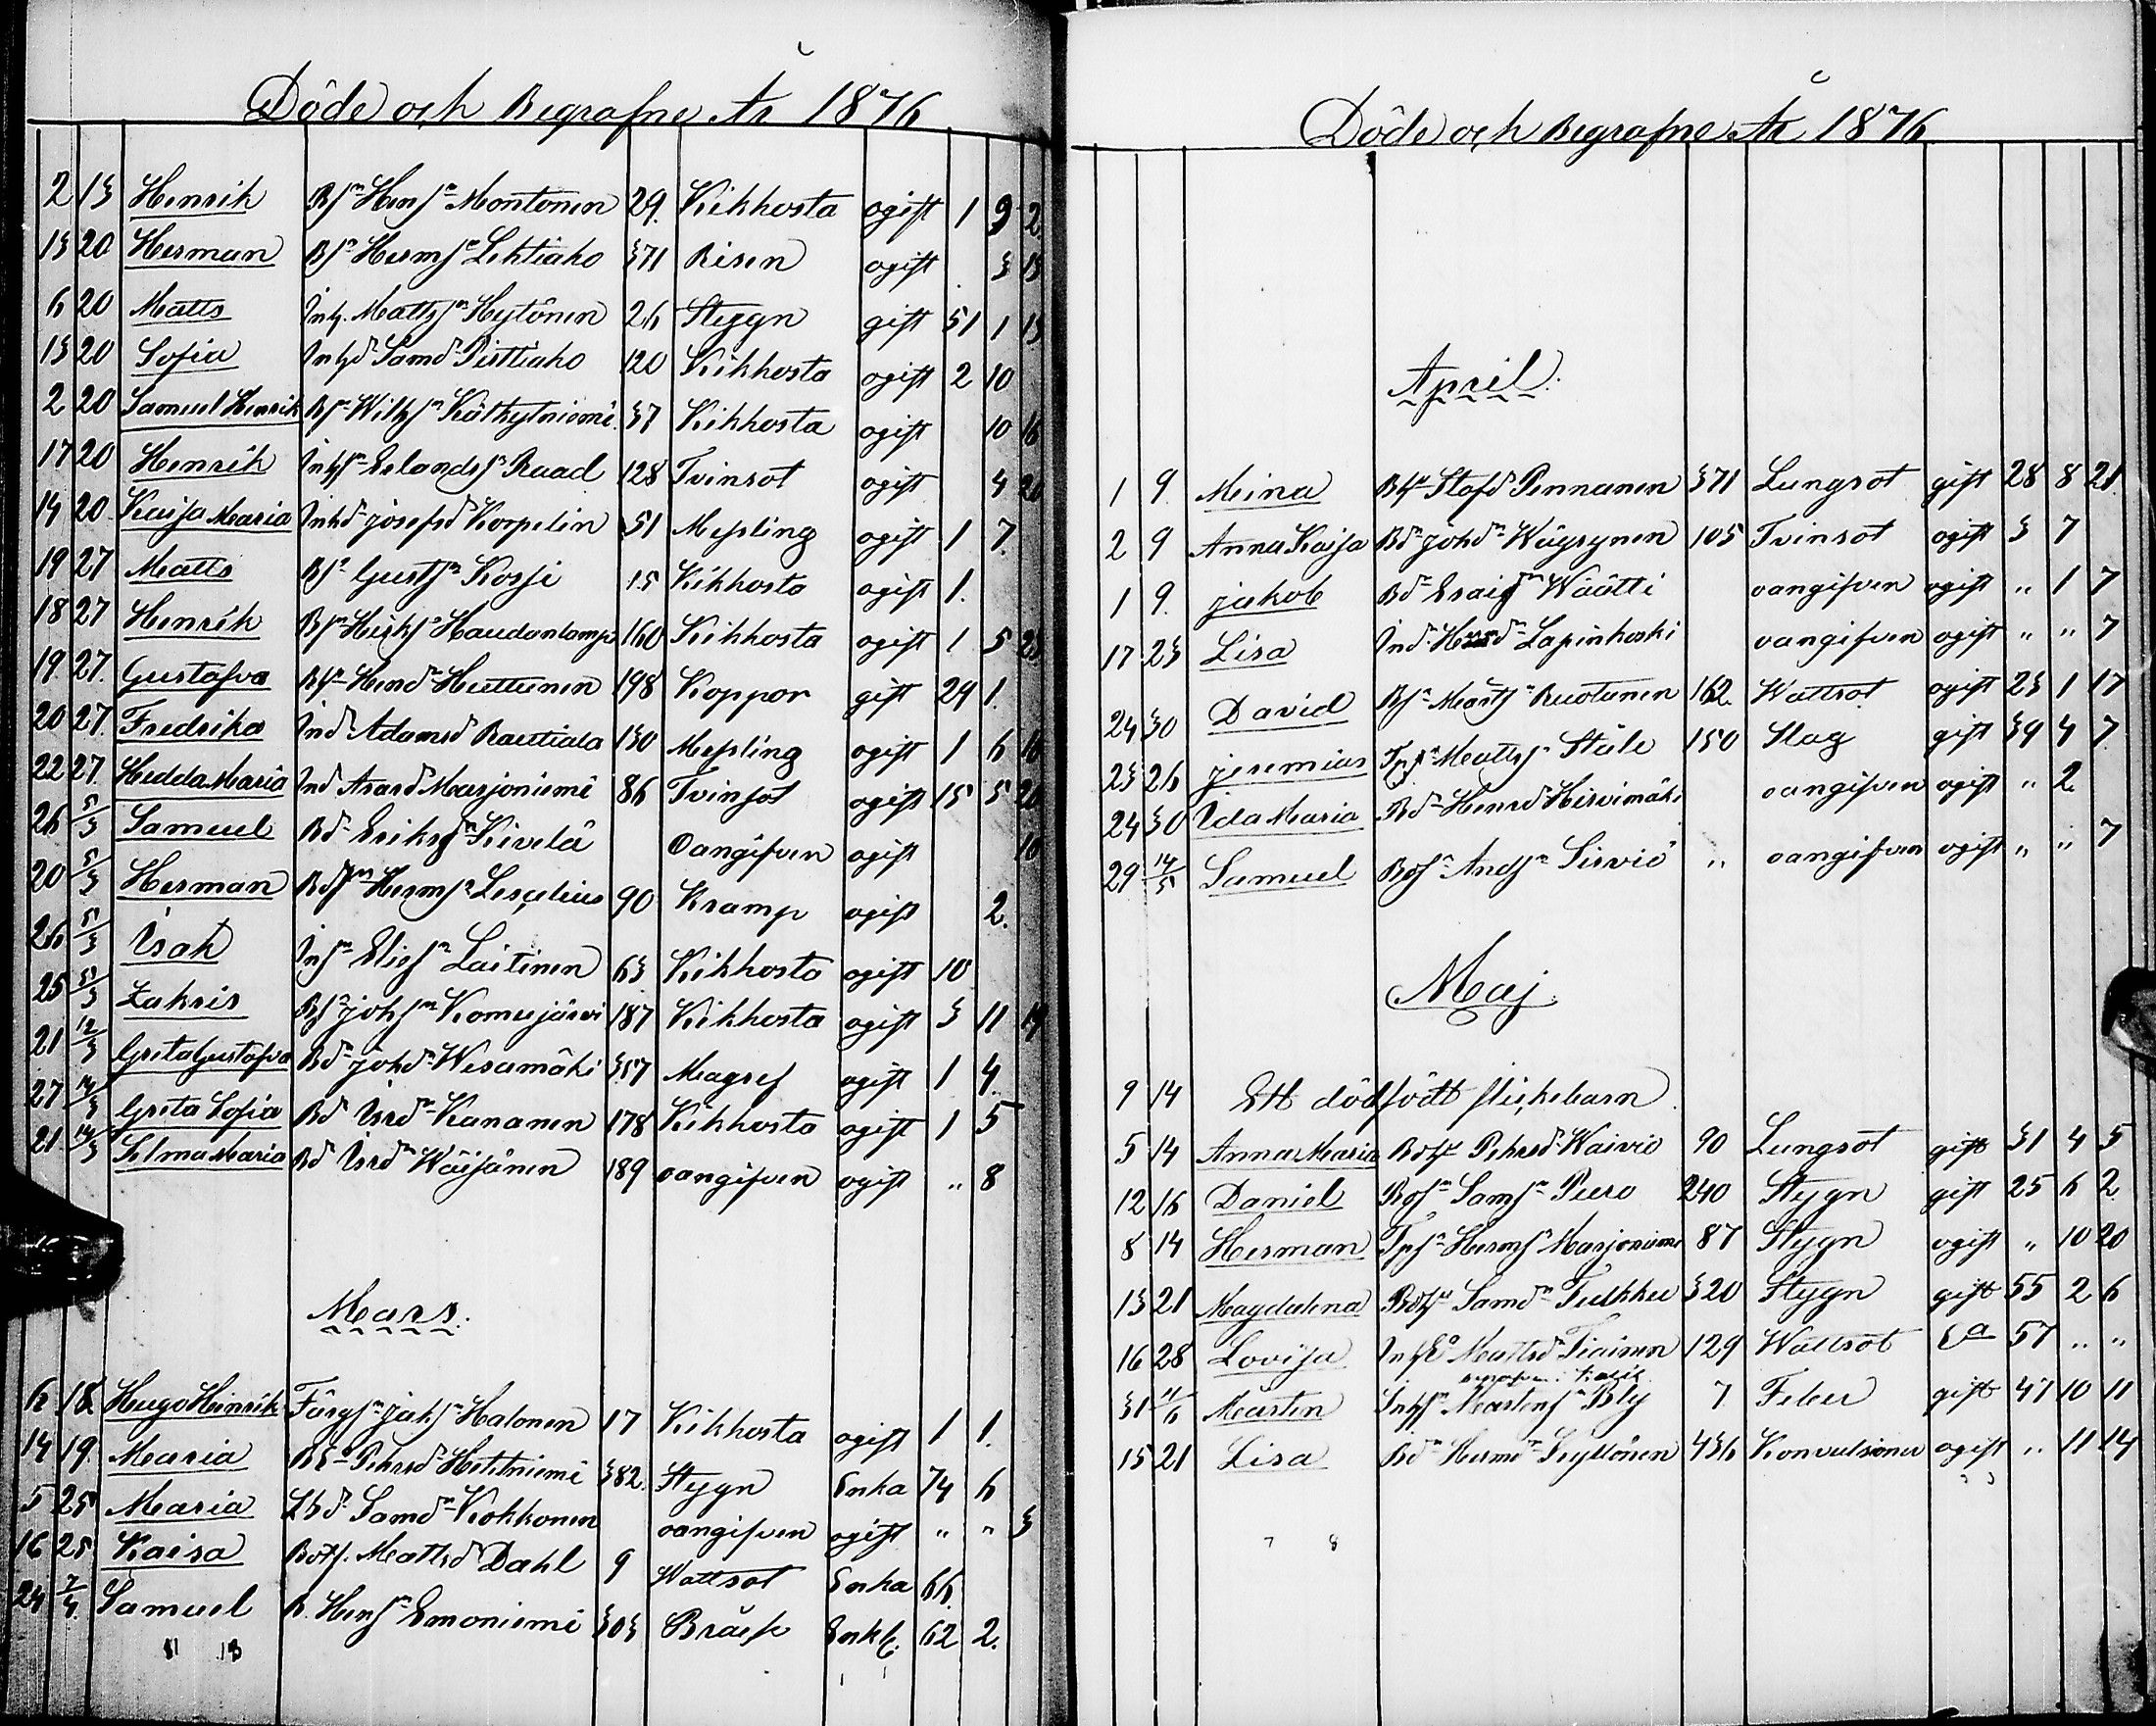 Döde och Begrafne År 1876
2 13 Henrik Bsn Hensn Montonen 29. Kikhosta ogift 1 9 2.
13 20 Herman Bsn Hermsn Lehtiaho 371 Risen ogift 3 13
6 20 Matts Inh. Mattssn Hytönen 26 Stygn gift 51 1 13
13 20 Sofia Inhd Samd Pisttiaho 120 Kikhosta ogift 2 10
2 20 Samuel Henrik Bsn Wilhsn Kätkytniemi 37 Kikhosta ogift 10 16
17 20 Henrik Inhsn Erlandssn Raad 128 Tvinsot ogift 4 20
14 20 Kaisa Maria Inhd Josefsd Korpelin 51 Messling ogift 1 7.
19 27 Matts Bsn Gustsn Korpi 15 Kikhosta ogift 1.
18 27 Henrik Bsn Hisksn Haudanlamp 160 Kikhosta ogift 1 5 23
19. 27. Gustafva Bhu Hend Huttunen 198 Koppor gift 29 1.
20 27. Fredrika Ind Adamsd Rautiala 130 Messling ogift 1 6 16
22 27. Hedda Maria Ind Asard Marjoniemi 86 Tvinsot ogift 15 5 20
26 5/3 Samuel Bd Eriksn Kivelä Oangifven ogift 10
20 5/3 Herman Bdsn Hermsn Lescelius 90 Kramp ogift 2.
26 5/3 Isak Insn Eliesn Laitinen 63 Kikhosta ogift 10
25 5/3 Zakris Bsn Johsn Komujärvi 187 Kikhosta ogift 3 11 19
21 12/3 Greta Gustafva Bd Johd Wesamäki 357 Magref ogift 1 4.
27 14/3 Greta Sofia Bd Isrd Kananen 178 Kikhosta ogift 1 5
21 14/3 Selma Maria Bd Isrd Wäisänen 189 oangifven ogift " 8
Mars.
6 18 Hugo Henrik Färgsn Jaksn Halonen 17 Kikhosta ogift 1 1.
14 19. Maria BEa Pehrsd Hetetniemi 382. Stygn Enka 74 6
5 25 Maria Lhd Samd Kokkonen oangifven ogift " " 3
16 25 Kaisa Mattsd Dahl 9 Wattsot Enka 66.
24 7/4. Samuel B. Hensn Emoniemi 303 Bråck Enkl. 62 2.
Döde och Begrafne År 1876
April.
1 9. Meina Bhu Stafd Pennanen 371 Lungsot gift 28 8 21
2 9 Anna Kaisa Bd Johd Wäyrynen 105 Tvinsot ogift 3 7
1 9. Jakob Bd Esaisn Wäätti oangifven ogift " 1 7
17 23 Lisa Ind Hend Lapinkoski oangifven ogift " " 7
24 30 David Bsn Mårtsn Ruotanen 162. Wattsot ogift 23 1 17
23 26 Jeremias Tpsn Mattssn Ståle 150 Slag gift 39 4 7
24 30 Ida Maria Bd Hensd Hirvimäki oangifven ogift " 2.
29 14/5 Samuel Bdsn Andsn Sirviö " oangifven ogift " " 7
Maj.
9 14 Ett dödfödt flickebarn
5 14 Anna Maria Pehrsd Waivio 90 Lungsot gift 31 4 5
12 16 Daniel Samsn Puro 240 Stygn gift 25 6 2
8 14 Herman Tpsn Hermsn Marjoniemi 87 Stygn ogift " 10 20
13 21 Magdalena Samd Tuikku 320 Stygn gift 55 2 6
16 28 Lovisa Mattsd Tiainen 129 Wattsot Ea 57 " "
31 11/6 Mårten Inhsn Mårtensn Bly 7 Feber gift 47 10 11
15 21 Lisa Bd Hermd Kyllönen 436 Konvulsioner ogift " 11 14